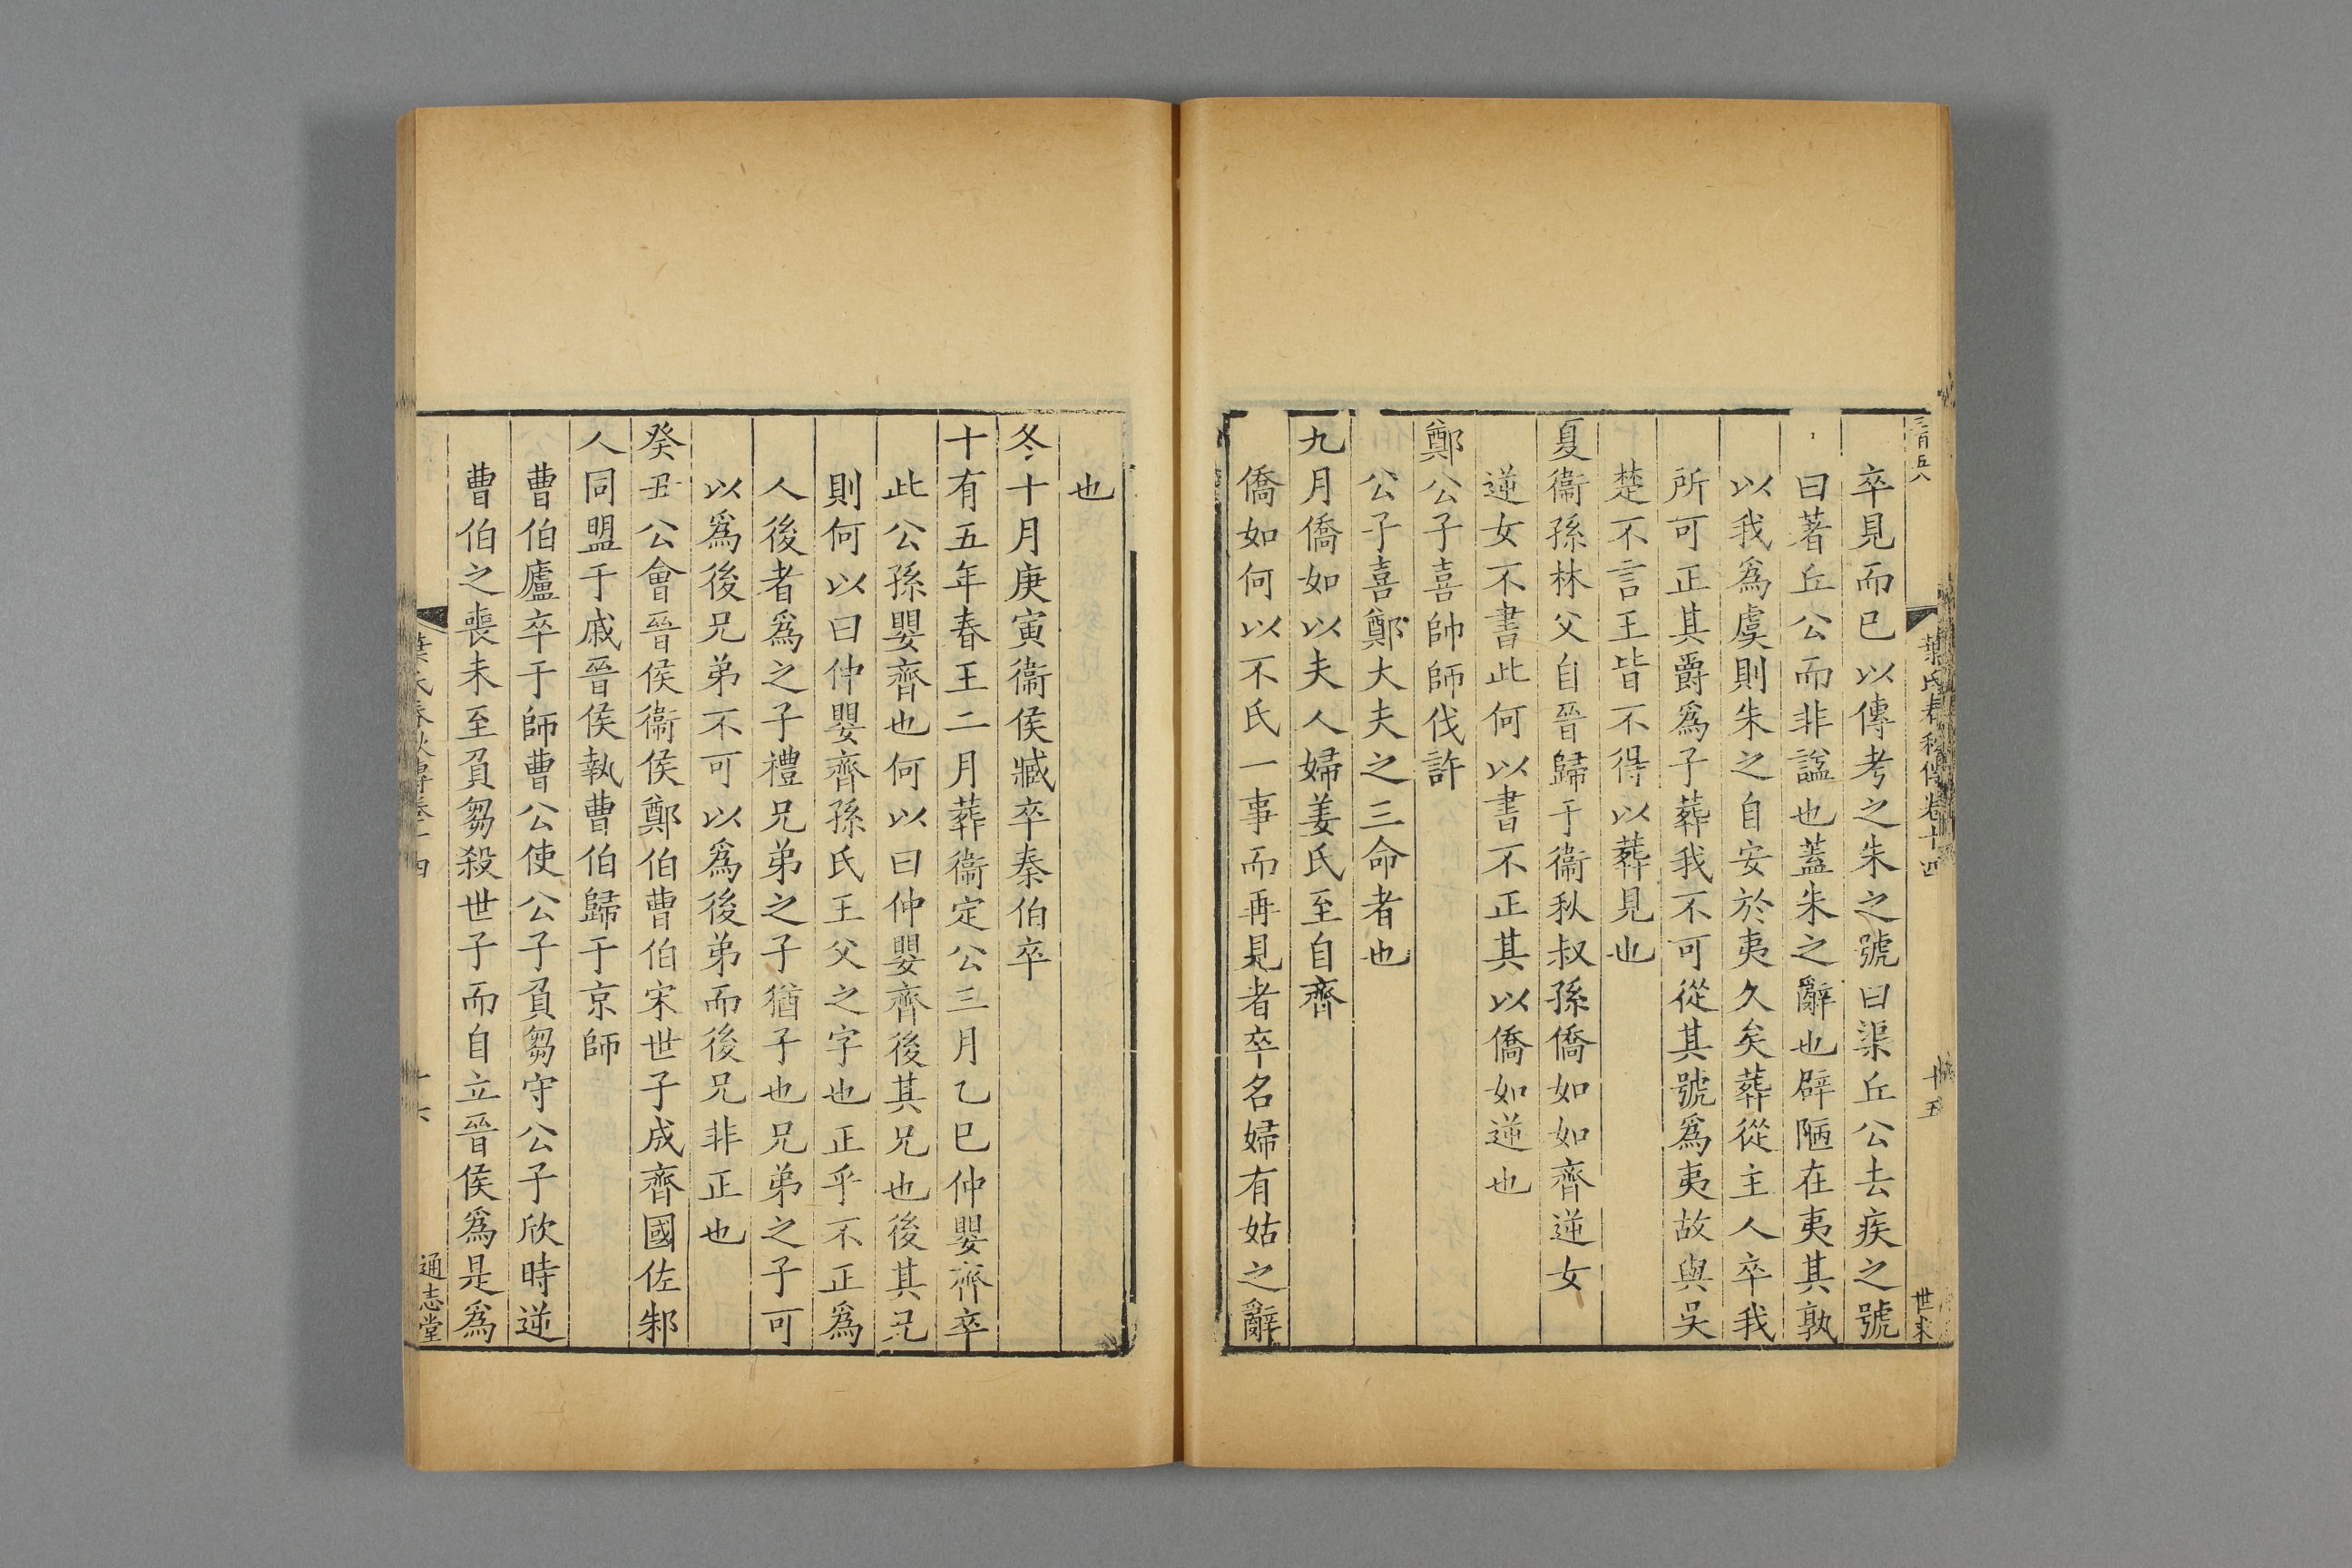 三百五八
葉氏春秋傳卷十四
十五
卒見而已以傳考之朱之號曰渠丘公去疾之號
曰著丘公而非諡也蓋朱之辭也辟陋在夷其孰
以我爲虞則朱之自安於夷久矣葬從主人卒我
所可正其爵爲子葬我不可從其號爲夷故與吳
楚不言王皆不得以葬見也
夏衞孫林父自晉歸于衞秋叔孫僑如如齊逆女
逆女不書此何以書不正其以僑如逆也
鄭公子喜帥師伐許
公子喜鄭大夫之三命者也
九月僑如以夫人婦姜氏至自齊
僑如何以不氏一事而再見者卒名婦有姑之辭
也
冬十月庚寅衞侯臧卒秦伯卒
十有五年春王二月葬衞定公三月乙巳仲嬰齊卒
此公孫嬰齊也何以曰仲嬰齊後其兄也後其兄
則何以曰仲嬰齊孫氏王父之字也正乎不正爲
人後者爲之子禮兄弟之子猶子也兄弟之子可
以爲後兄弟不可以爲後弟而後兄非正也
癸丑公會晉侯衞侯鄭伯曹伯宋世子成齊國佐邾
人同盟于戚晉侯執曹伯歸于京師
曹伯廬卒于師曹公使公子負芻守公子欣時逆
曹伯之喪未至負芻殺世子而自立晉侯爲是爲
葉氏春秋傳卷十四
十六
通志堂